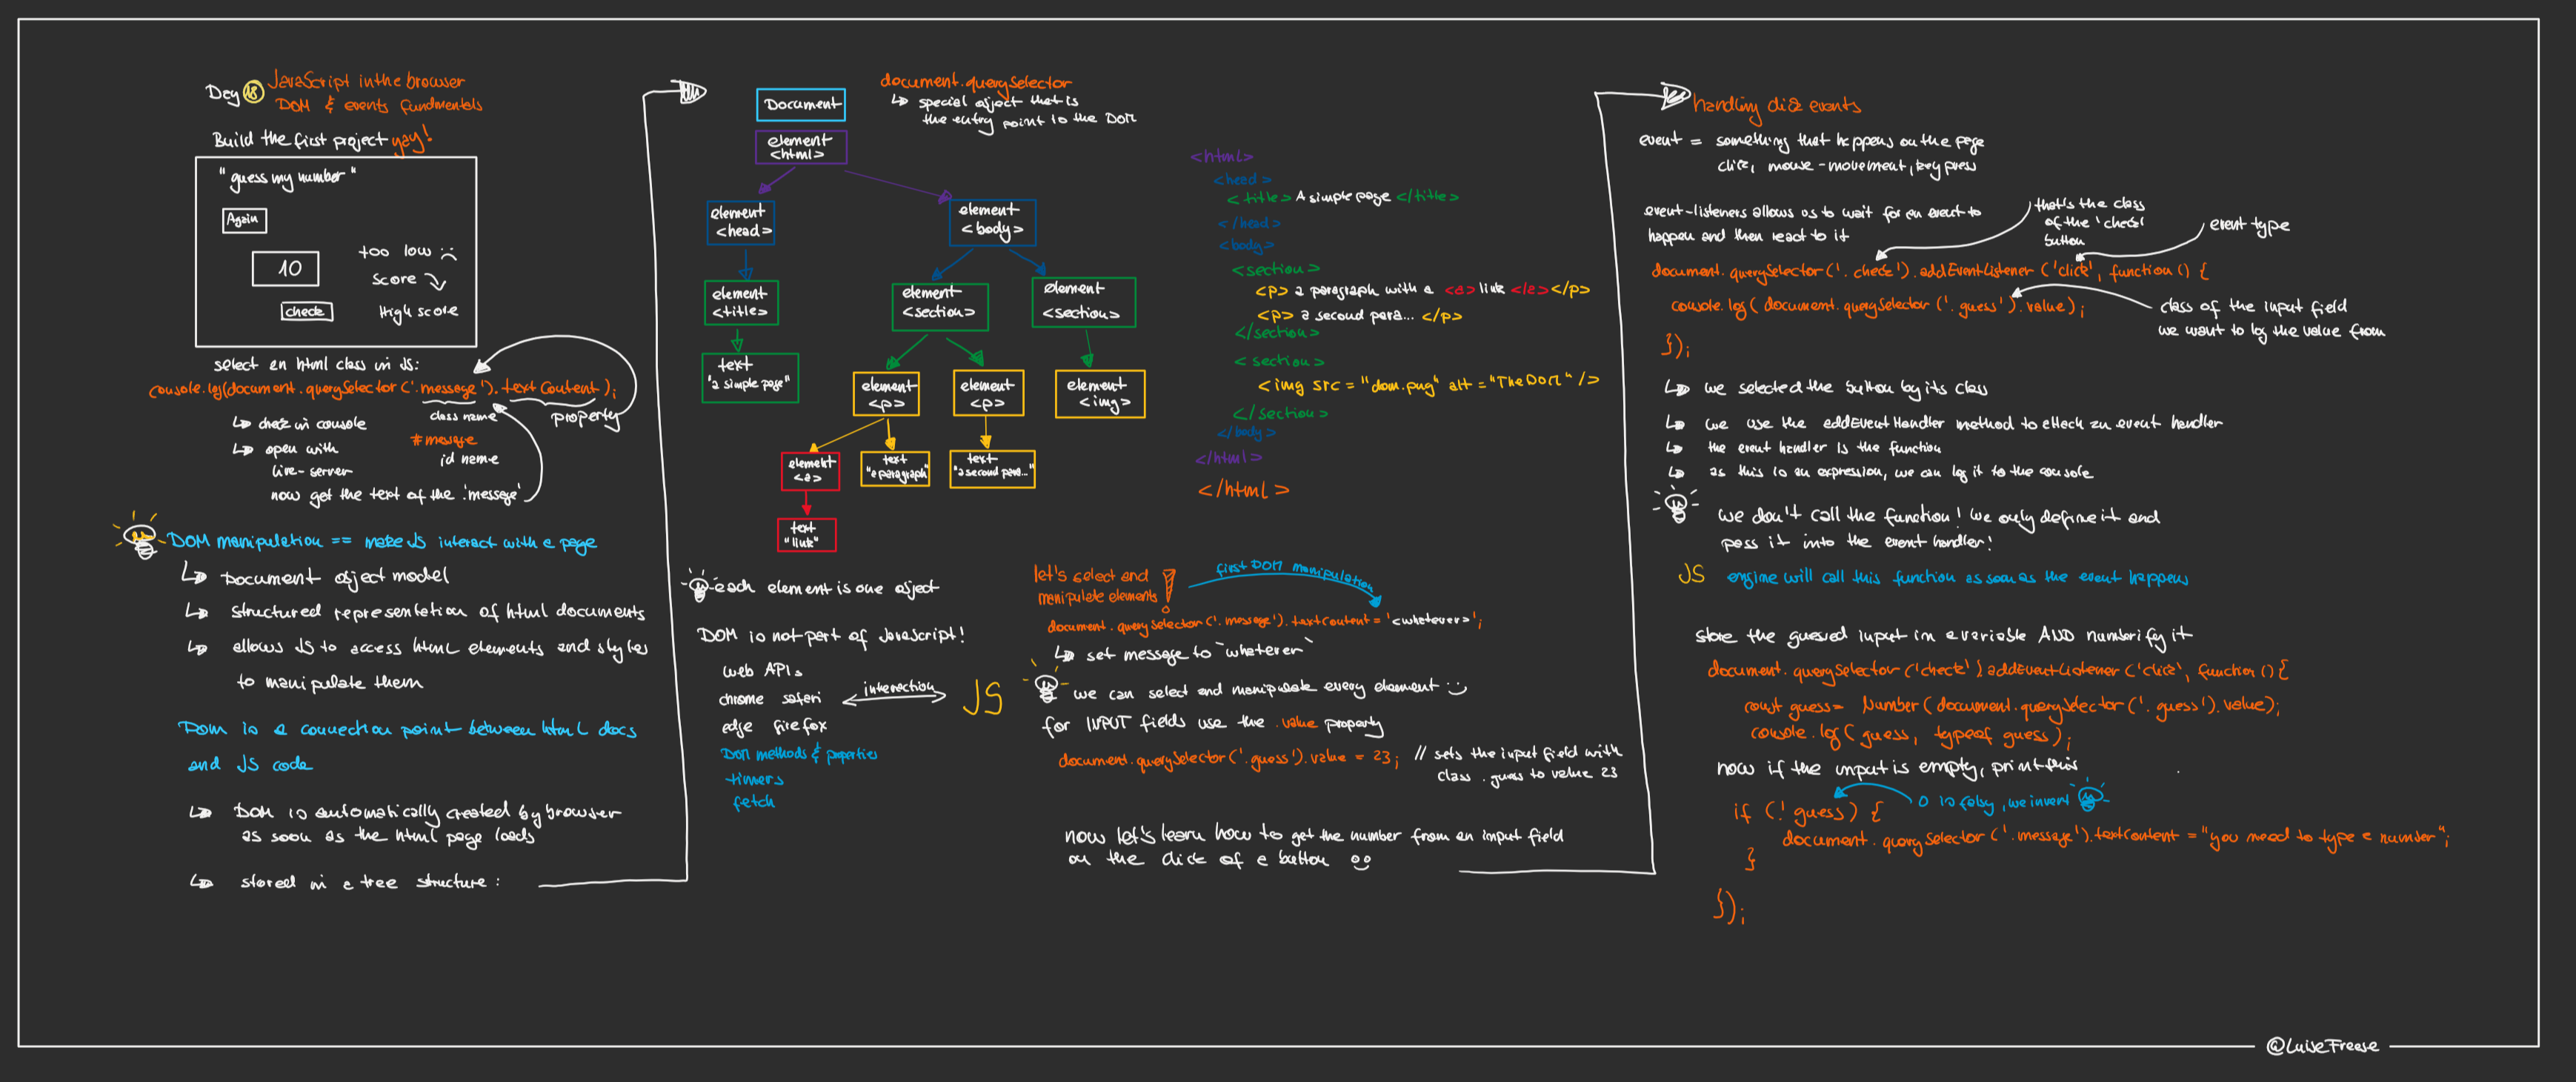 Day 18 JavaScript in the browser
DOM & events fundmentals
Build the first project yay!
"guess my number"
Again
10
too low
score
check
High score
select an html class in JS:
console.log(document.querySelector('.message').textContent);
class name
property
check in console
#message
id name
open with
live-server
now get the text of the 'message'
DOM manipulation == make JS interact with a page
Document object model
structured representation of html documents
allows JS to access html elements and styles
to manipulate them
DOM is a connection point between html docs
and JS code
DOM is automatically created by browser
as soon as the html page loads
stored in a tree structure:
Document
element
<html>
element
<head>
element
<body>
element
<title>
element
<section>
element
<section>
text
"a simple page"
element
<p>
element
<p>
element
<img>
element
<a>
text
"a paragraph"
text
"a second para..."
text
"link"
document.querySelector
special object that is
the entry point to the DOM
<html>
<head>
<title> A simple page </title>
</head>
<body>
<section>
<p> a paragraph with a <a> link </a> </p>
<p> a second para... </p>
</section>
<section>
<img src = "dom.png" alt = "The DOM" />
</section>
</body>
</html>
</html>
each element is one object
DOM is not part of JavaScript!
web APIs
chrome safari
edge firefox
interaction
JS
DOM methods & properties
timers
fetch
let's select and
manipulate elements!
first DOM manipulation
document.querySelector('.message').textContent = '<whatever>';
set message to `whatever`
we can select and manipulate every element :)
for INPUT fields use the .value property
document.querySelector('.guess').value = 23; // sets the input field with
class .guess to value 23
now let's learn how to get the number from an input field
on the click of a button
handling click events
event = something that happens on the page
click, mouse-movement, key press
event-listeners allows us to wait for an event to
happen and then react to it
that's the class
of the 'check'
button
event type
document.querySelector('.check').addEventListener('click', function() {
console.log(document.querySelector('.guess').value);
});
class of the input field
we want to log the value from
we selected the button by its class
we use the addEventHandler method to attach an event handler
the event handler is the function
as this is an expression, we can log it to the console
we don't call the function! we only define it and
pass it into the event handler!
JS engine will call this function as soon as the event happens
store the guessed input in a variable AND numberify it
document.querySelector('check').addEventListener('click', function() {
const guess = Number(document.querySelector('.guess').value);
console.log(guess, typeof guess);
now if the input is empty, print this
if (!guess) {
0 is falsy, we invert
document.querySelector('.message').textContent = "you need to type a number";
}
});
@LuiseFreese